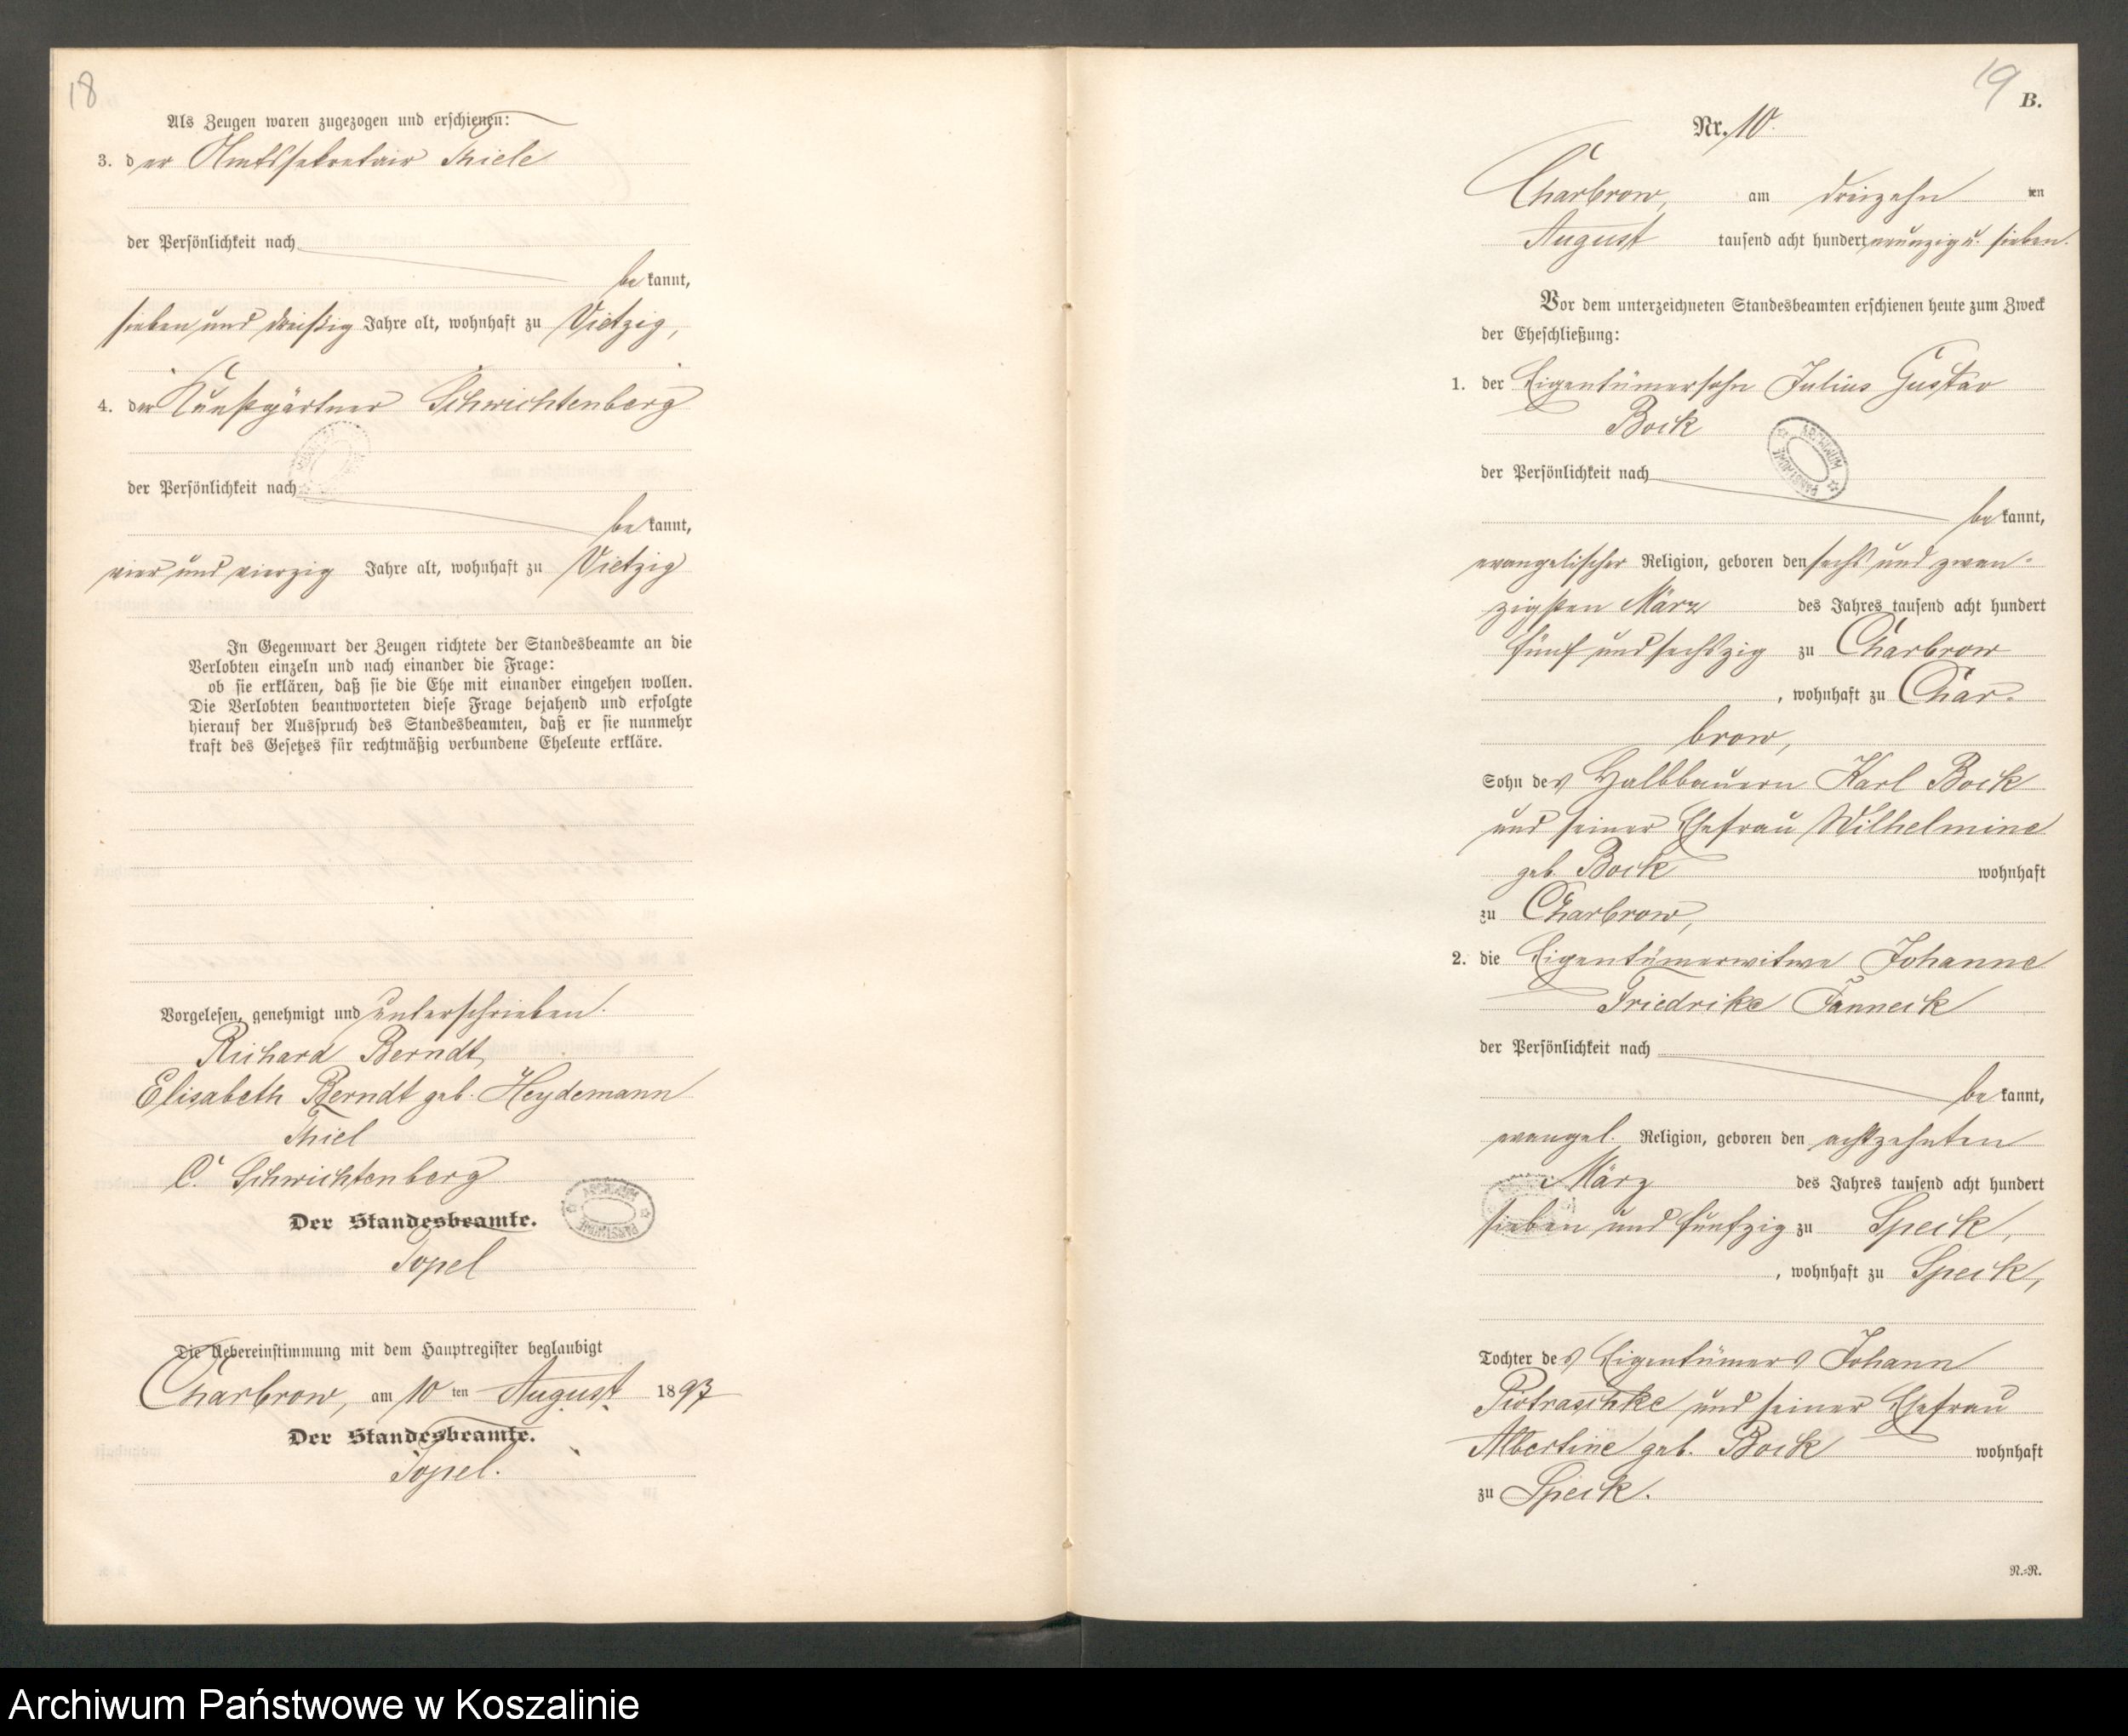 18
Als Zeugen waren zugezogen und erschienen:
3. der Amtssekretair Thiele
der Persönlichkeit nach
bekannt,
sieben und dreißig Jahre alt, wohnhaft zu Vietzig,
4. der Kunstgärtner Schwichtenberg
der Persönlichkeit nach
bekannt,
vier und vierzig Jahre alt, wohnhaft zu Vietzig
In Gegenwart der Zeugen richtete der Standesbeamte an die
Verlobten einzeln und nach einander die Frage:
ob sie erklären, daß sie die Ehe mit einander eingehen wollen.
Die Verlobten beantworteten diese Frage bejahend und erfolgte
hierauf der Ausspruch des Standesbeamten, daß er sie nunmehr
kraft des Gesetzes für rechtmäßig verbundene Eheleute erkläre.
Vorgelesen, genehmigt und unterschrieben.
Richard Berndt,
Elisabeth Berndt geb. Heydemann
Thiel
C. Schwichtenberg
Der Standesbeamte.
Topel
Die Uebereinstimmung mit dem Hauptregister beglaubigt
Charbrow, am 10 ten August 1897
Der Standesbeamte.
Topel.
19
B.
Nr. 10.
Charbrow, am dreizehn ten
August tausend acht hundert neunzig u. sieben.
Vor dem unterzeichneten Standesbeamten erschienen heute zum Zweck
der Eheschließung:
1. der Eigentümersohn Julius Gustav
Bock
der Persönlichkeit nach
bekannt,
evangelischer Religion, geboren den sechs und zwan-
zigsten März des Jahres tausend acht hundert
fünf und sechszig zu Charbrow
, wohnhaft zu Char-
brow,
Sohn des Halbbauern Karl Bock
und seiner Ehefrau Wilhelmine
geb. Bock wohnhaft
zu Charbrow,
2. die Eigentümerwitwe Johanne
Friedrike Janneck
der Persönlichkeit nach
bekannt,
evangel. Religion, geboren den achtzehnten
März des Jahres tausend acht hundert
sieben und fünfzig zu Speck,
, wohnhaft zu Speck,
Tochter des Eigentümers Johann
Piotraschke und seiner Ehefrau
Albertine geb. Bock wohnhaft
zu Speck.
N.-R.
Archiwum Państwowe w Koszalinie